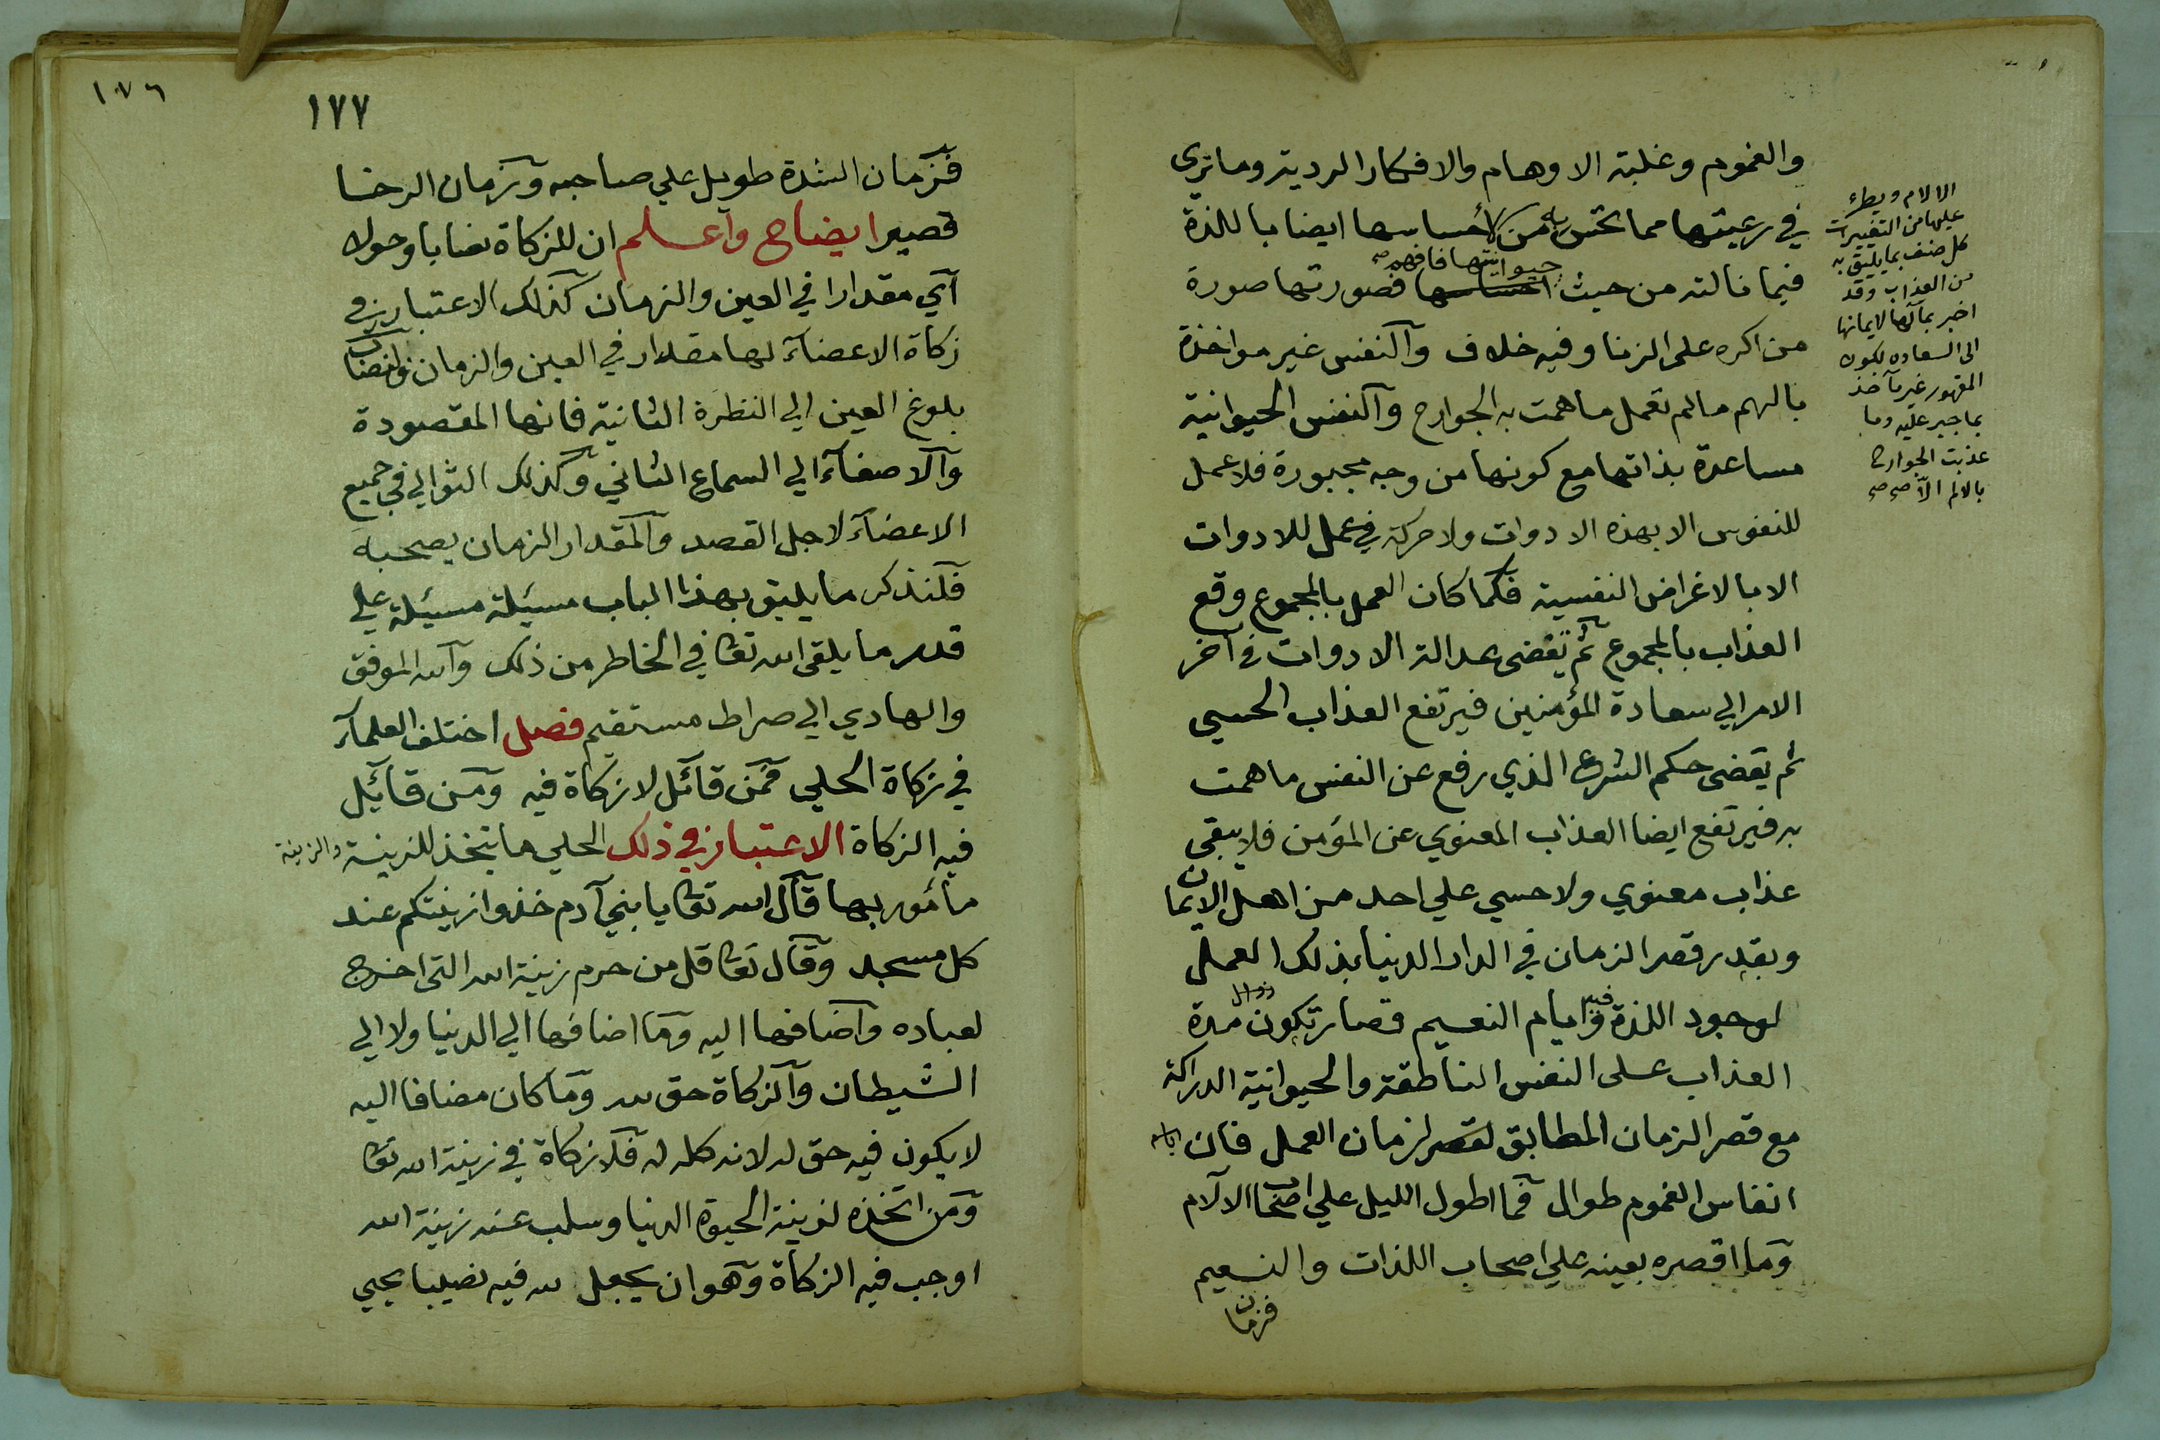 والغموم وغلبة الاوهام والافكار الردية وما تري
في رعيتها مما تحس به من احساسها ايضا باللذة
حيوانيتها فافهم صح
فيما نالته من حيث احساسها فصورتها صورة
من اكره على الزنا وفيه خلاف والنفس غير مواخذة
بالهم ما لم تعمل ما همت به الجوارح والنفس الحيوانية
مساعدة بذاتها مع كونها من وجه مجبورة فلا عمل
للنفوس الا بهذه الادوات ولا حركة في عمل للادوات
الا بالاغراض النفسية فكما كان العمل بالمجموع وقع
العذاب بالمجموع ثم تقضى عدالة الادوات في آخر
الامر الي سعادة المؤمنين فيرتفع العذاب الحسي
ثم يقضى حكم الشرع الذي رفع عن النفس ما همت
به فيرتفع ايضا العذاب المعنوي عن المؤمن فلا يبقى
عذاب معنوي ولا حسي علي احد من اهل الايمان
وبقدر قصر الزمان في الدار الدنيا بذلك العمل
لوجود اللذة فيه وايام النعيم قصار تكون مدة
العذاب على النفس الناطقة والحيوانية الدراكة
مع قصر الزمان المطابق لقصر لزمان العمل فان
انفاس الغموم طوال فما اطول الليل علي اصحاب الآلام
وما اقصره بعينه علي اصحاب اللذات والنعيم
فزمان
الالام ويطرء
عليها من التغييرات
كل صنف بما يليق به
من العذاب وقد
اخبر بمآلها لايمانها
الى السعاده لكون
المقهور غير مآخذ
بما جبر عليه وما
عذبت الجوارح
بالالم الا صح صح
١٧٦
١٧٧
فزمان الشدة طويل علي صاحبه وزمان الرخا
قصير ايضاح واعلم ان للزكاة نصابا وحولا
اي مقدارا في العين والزمان كذلك الاعتبار في
زكاة الاعضآء لها مقدار في العين والزمان فالنصاب
بلوغ العين الي النظرة الثانية فانها المقصودة
والاصغآء الي السماع الثاني وكذلك الثوالي في جميع
الاعضآء لاجل القصد والمقدار الزمان يصحبه
فلنذكر ما يليق بهذا الباب مسئلة مسئلة علي
قدر ما يلقى الله تعا في الخاطر من ذلك والله الموفق
والهادي الي صراط مستقيم فصل اختلف العلمآء
في زكاة الحلي فمن قآئل لا زكاة فيه ومن قآئل
فيه الزكاة الاعتبار في ذلك الحلي ما يتخذ للزينة والزينة
مأمور بها قال الله تعا يا بني آدم خذوا زينتكم عند
كل مسجد وقال تعا قل من حرم زينة الله التى اخرج
لعباده واضافها اليه وما اضافها الي الدنيا ولا الي
الشيطان والزكاة حق لله وما كان مضافا اليه
لا يكون فيه حق له لانه كله له فلا زكاة في زينة الله تعا
ومن اتخذه لزينة الحيوة الدنيا وسلب عنه زينة الله
اوجب فيه الزكاة وهو ان يجعل لله فيه نصيبا يحيي